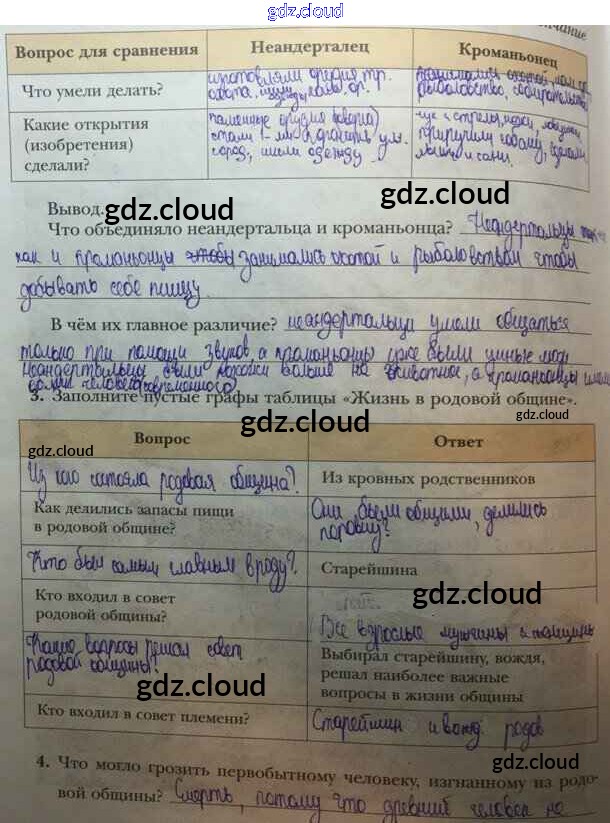 gdz.cloud
чание
Вопрос для сравнения Неандерталец Кроманьонец
Что умели делать? изготовляли орудия тр. охота,
рыболовство, собирательство
Какие открытия
(изобретения)
сделали?
каменные орудия
город, шили одежду
приручили собаку, сделали
Вывод.
gdz.cloud
gdz.cloud
Что объединяло неандертальца и кроманьонца? Неандертальцы так
как и кроманьонцы чтобы занимались охотой и рыболовством чтобы
добывать себе пищу.
В чём их главное различие? неандертальцы умели общаться
только при помощи звуков, а кроманьонцы уже были умные люди
неандертальцы были похожи больше на животное, а кроманьонцы
современного
3. Заполните пустые графы таблицы «Жизнь в родовой общине».
gdz.cloud
gdz.cloud
Вопрос Ответ
gdz.cloud
Из кого состояла родовая община? Из кровных родственников
Как делились запасы пищи
в родовой общине?
Они были общими, делились
поровну?
gdz.cloud
Кто был самым главным в роду? Старейшина
gdz.cloud
Кто входил в совет
родовой общины?
Все взрослые мужчины и женщины
Какие вопросы решал совет
родовой общины?
Выбирал старейшину, вождя,
решал наиболее важные
вопросы в жизни общины
gdz.cloud
Кто входил в совет племени? Старейшин и вожд. родов
gdz.cloud
4. Что могло грозить первобытному человеку, изгнанному из родо-
вой общины? Смерть, потому что древний человек не
gdz.cloud